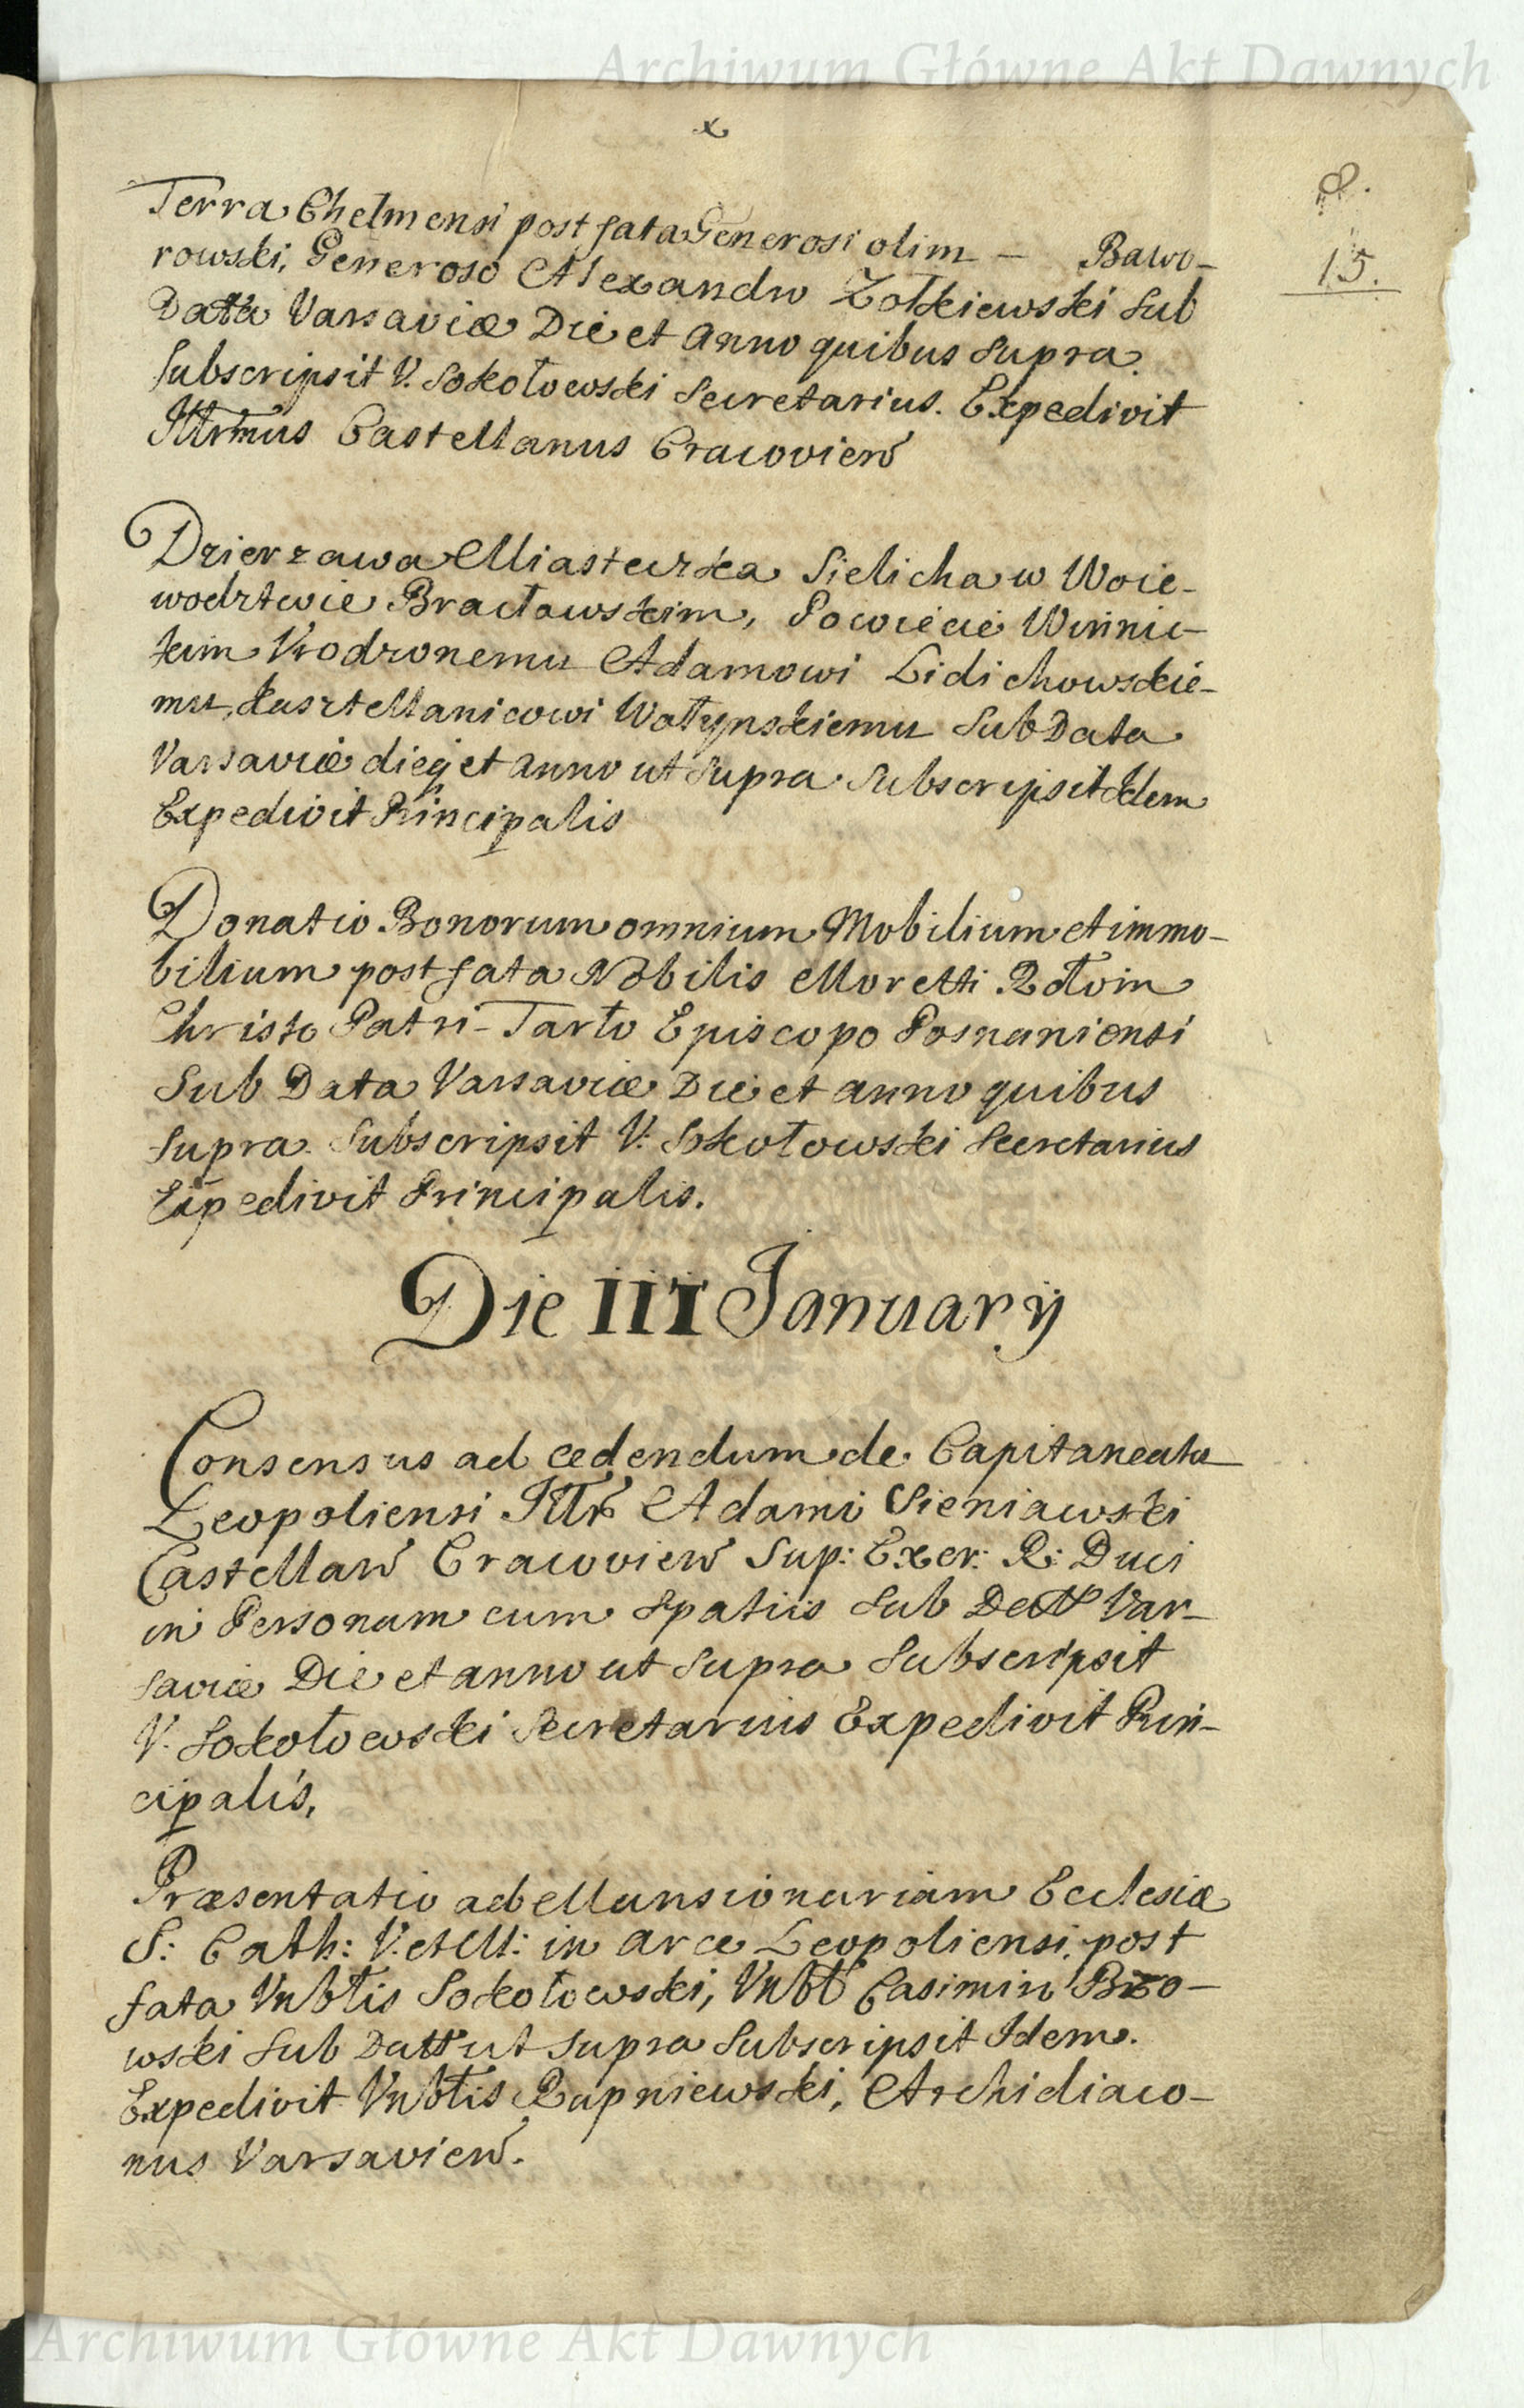 Archiwum Główne Akt Dawnych
x
8.
15.
Terra Chelmensi post fata Generosi olim — Bawo-
rowski, Generoso Alexandro Żołkiewski sub
Data Varsaviæ Die et Anno quibus supra.
Subscripsit V. Sokołowski Secretarius. Expedivit
Illrmus Castellanus Cracovien
Dzierzawa Miasteczka Sielicha w Woie-
wodztwie Bracławskim, Powiecie Winnic-
kim Vrodzonemu Adamowi Lidichowskie-
mu, kasztellanicowi Wołynskiemu Sub Data
Varsaviæ dieq et anno ut supra Subscripsit Idem
Expedivit Principalis
Donatio Bonorum omnium Mobilium et immo-
bilium post fata Nobilis Moretti R dło in
Christo Patri Tarło Episcopo Posnaniensi
Sub Data Varsaviæ Die et anno quibus
supra. Subscripsit V. Sokołowski Secretarius
Expedivit Principalis.
Die III January
Consensus ad cedendum de Capitaneatu
Leopoliensi Illr Adami Sieniawski
Castellan Cracovien Sup: Exer: R: Duci
in Personam cum spatiis sub Datt Var-
saviæ Die et anno ut supra Subscripsit
V. Sokołowski Secretarius Expedivit Prin-
cipalis,
Præsentatio ad Mansionariam Ecclesiæ
S: Cath: V. et M: in arce Leopoliensi, post
fata Vnbłis Sokołowski, Vnbł Casimiri
wski sub Datt ut supra Subscripsit Idem.
Expedivit Vnbłis Rupniewski, Archidiaco-
nus Varsavien.
Archiwum Główne Akt Dawnych